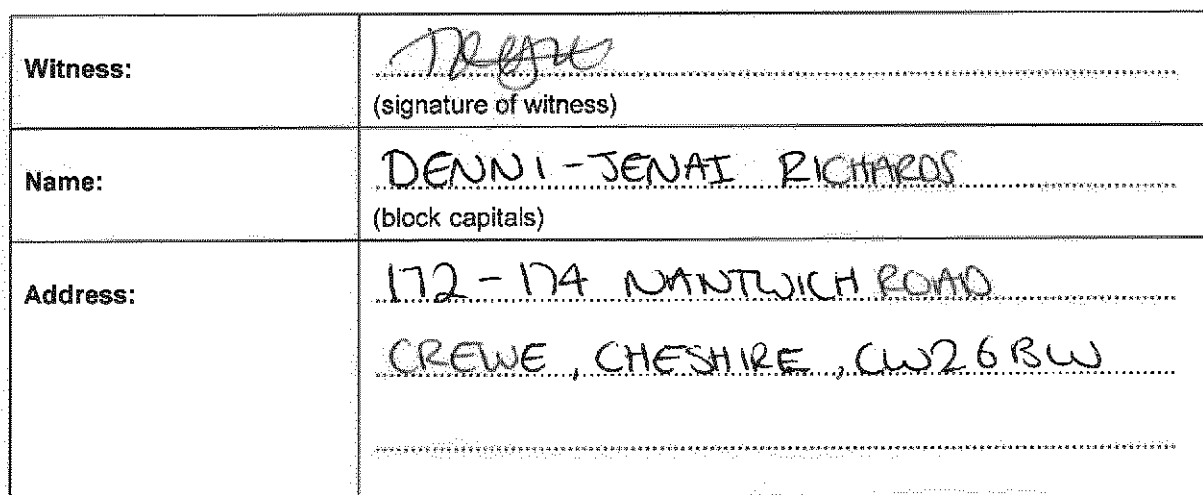 Witness:
(signature of witness)
Name:
DENNI-JENAI RICHARDS
(block capitals)
Address:
172-174 NANTWICH ROAD
CREWE, CHESHIRE, CW2 6BW